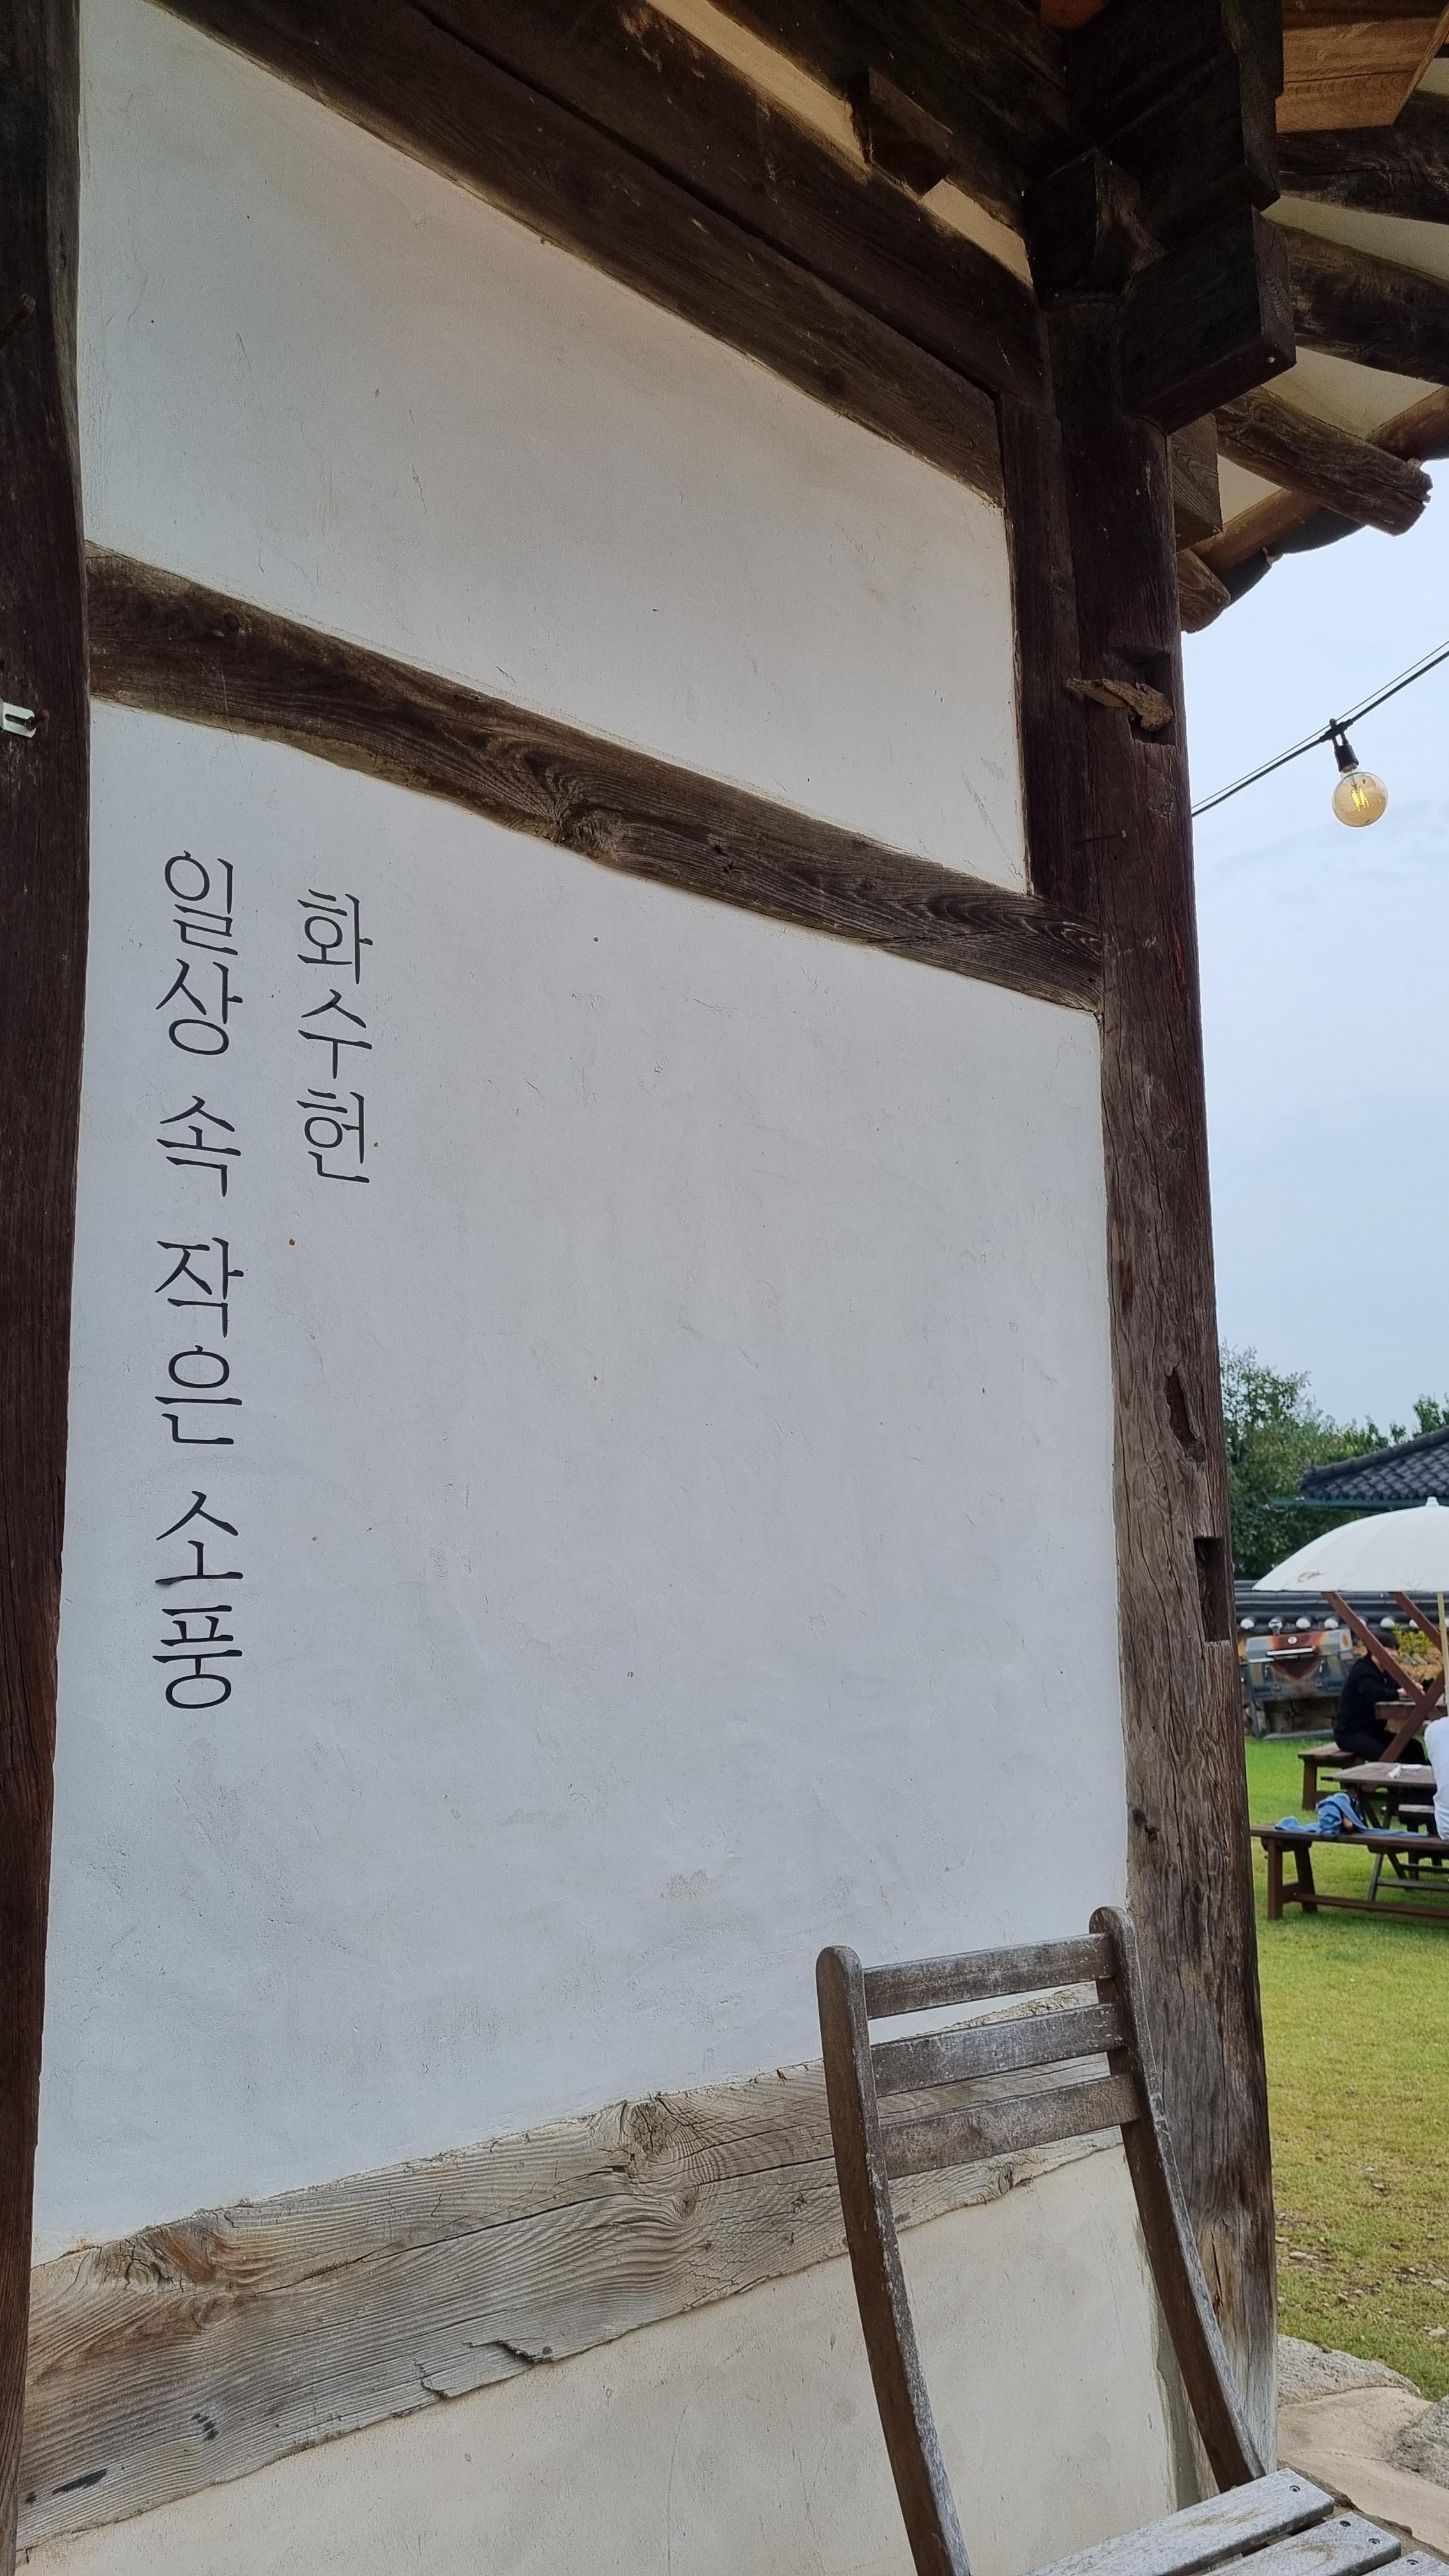 화수헌
일상 속 작은 소풍